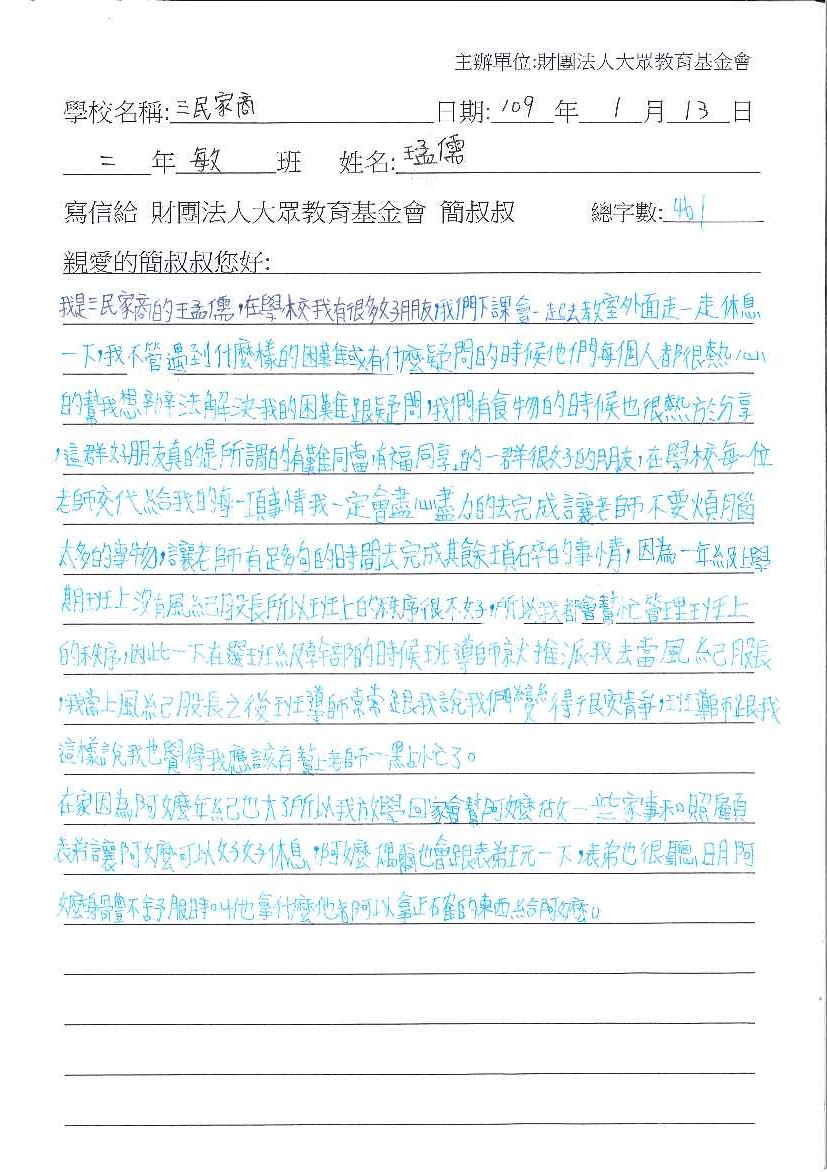 主辦單位:財團法人大眾教育基金會
學校名稱:三民家商 日期:109年1月13日
二年敏班 姓名:王孟儒
寫信給 財團法人大眾教育基金會 簡叔叔 總字數:461
親愛的簡叔叔您好:
我是三民家商的王孟儒,在學校我有很多好朋友,我們下課會一起去教室外面走一走休息
一下,我不管遇到什麼樣的困難或有什麼疑問的時候他們每個人都很熱心
的幫我想辦法解決我的困難跟疑問,我們有食物的時候也很熱於分享
,這群好朋友真的是所謂的「有難同當,有福同享」的一群很好的朋友,在學校每一位
老師交代給我的每一項事情我一定會盡心盡力的去完成讓老師不要煩腦
太多的事物,讓老師有足夠的時間去完成其餘瑣碎的事情,因為一年級上學
期班上沒有風紀股長所以班上的秩序很不好,所以我都會幫忙管理班上
的秩序,因此一下在選班級幹部的時候班導師就推派我去當風紀股長
,我當上風紀股長之後班導師常常跟我說我們變得很安靜,班導師跟我
這樣說我也覺得我應該有幫上老師一點小忙了。
在家因為阿嬤年紀也大了所以我放學回家會幫阿嬤做一些家事和照顧
表弟讓阿嬤可以好好休息,阿嬤偶爾也會跟表弟玩一下,表弟也很聰明阿
嬤身體不舒服時叫他拿什麼他都可以拿正確的東西給阿嬤。